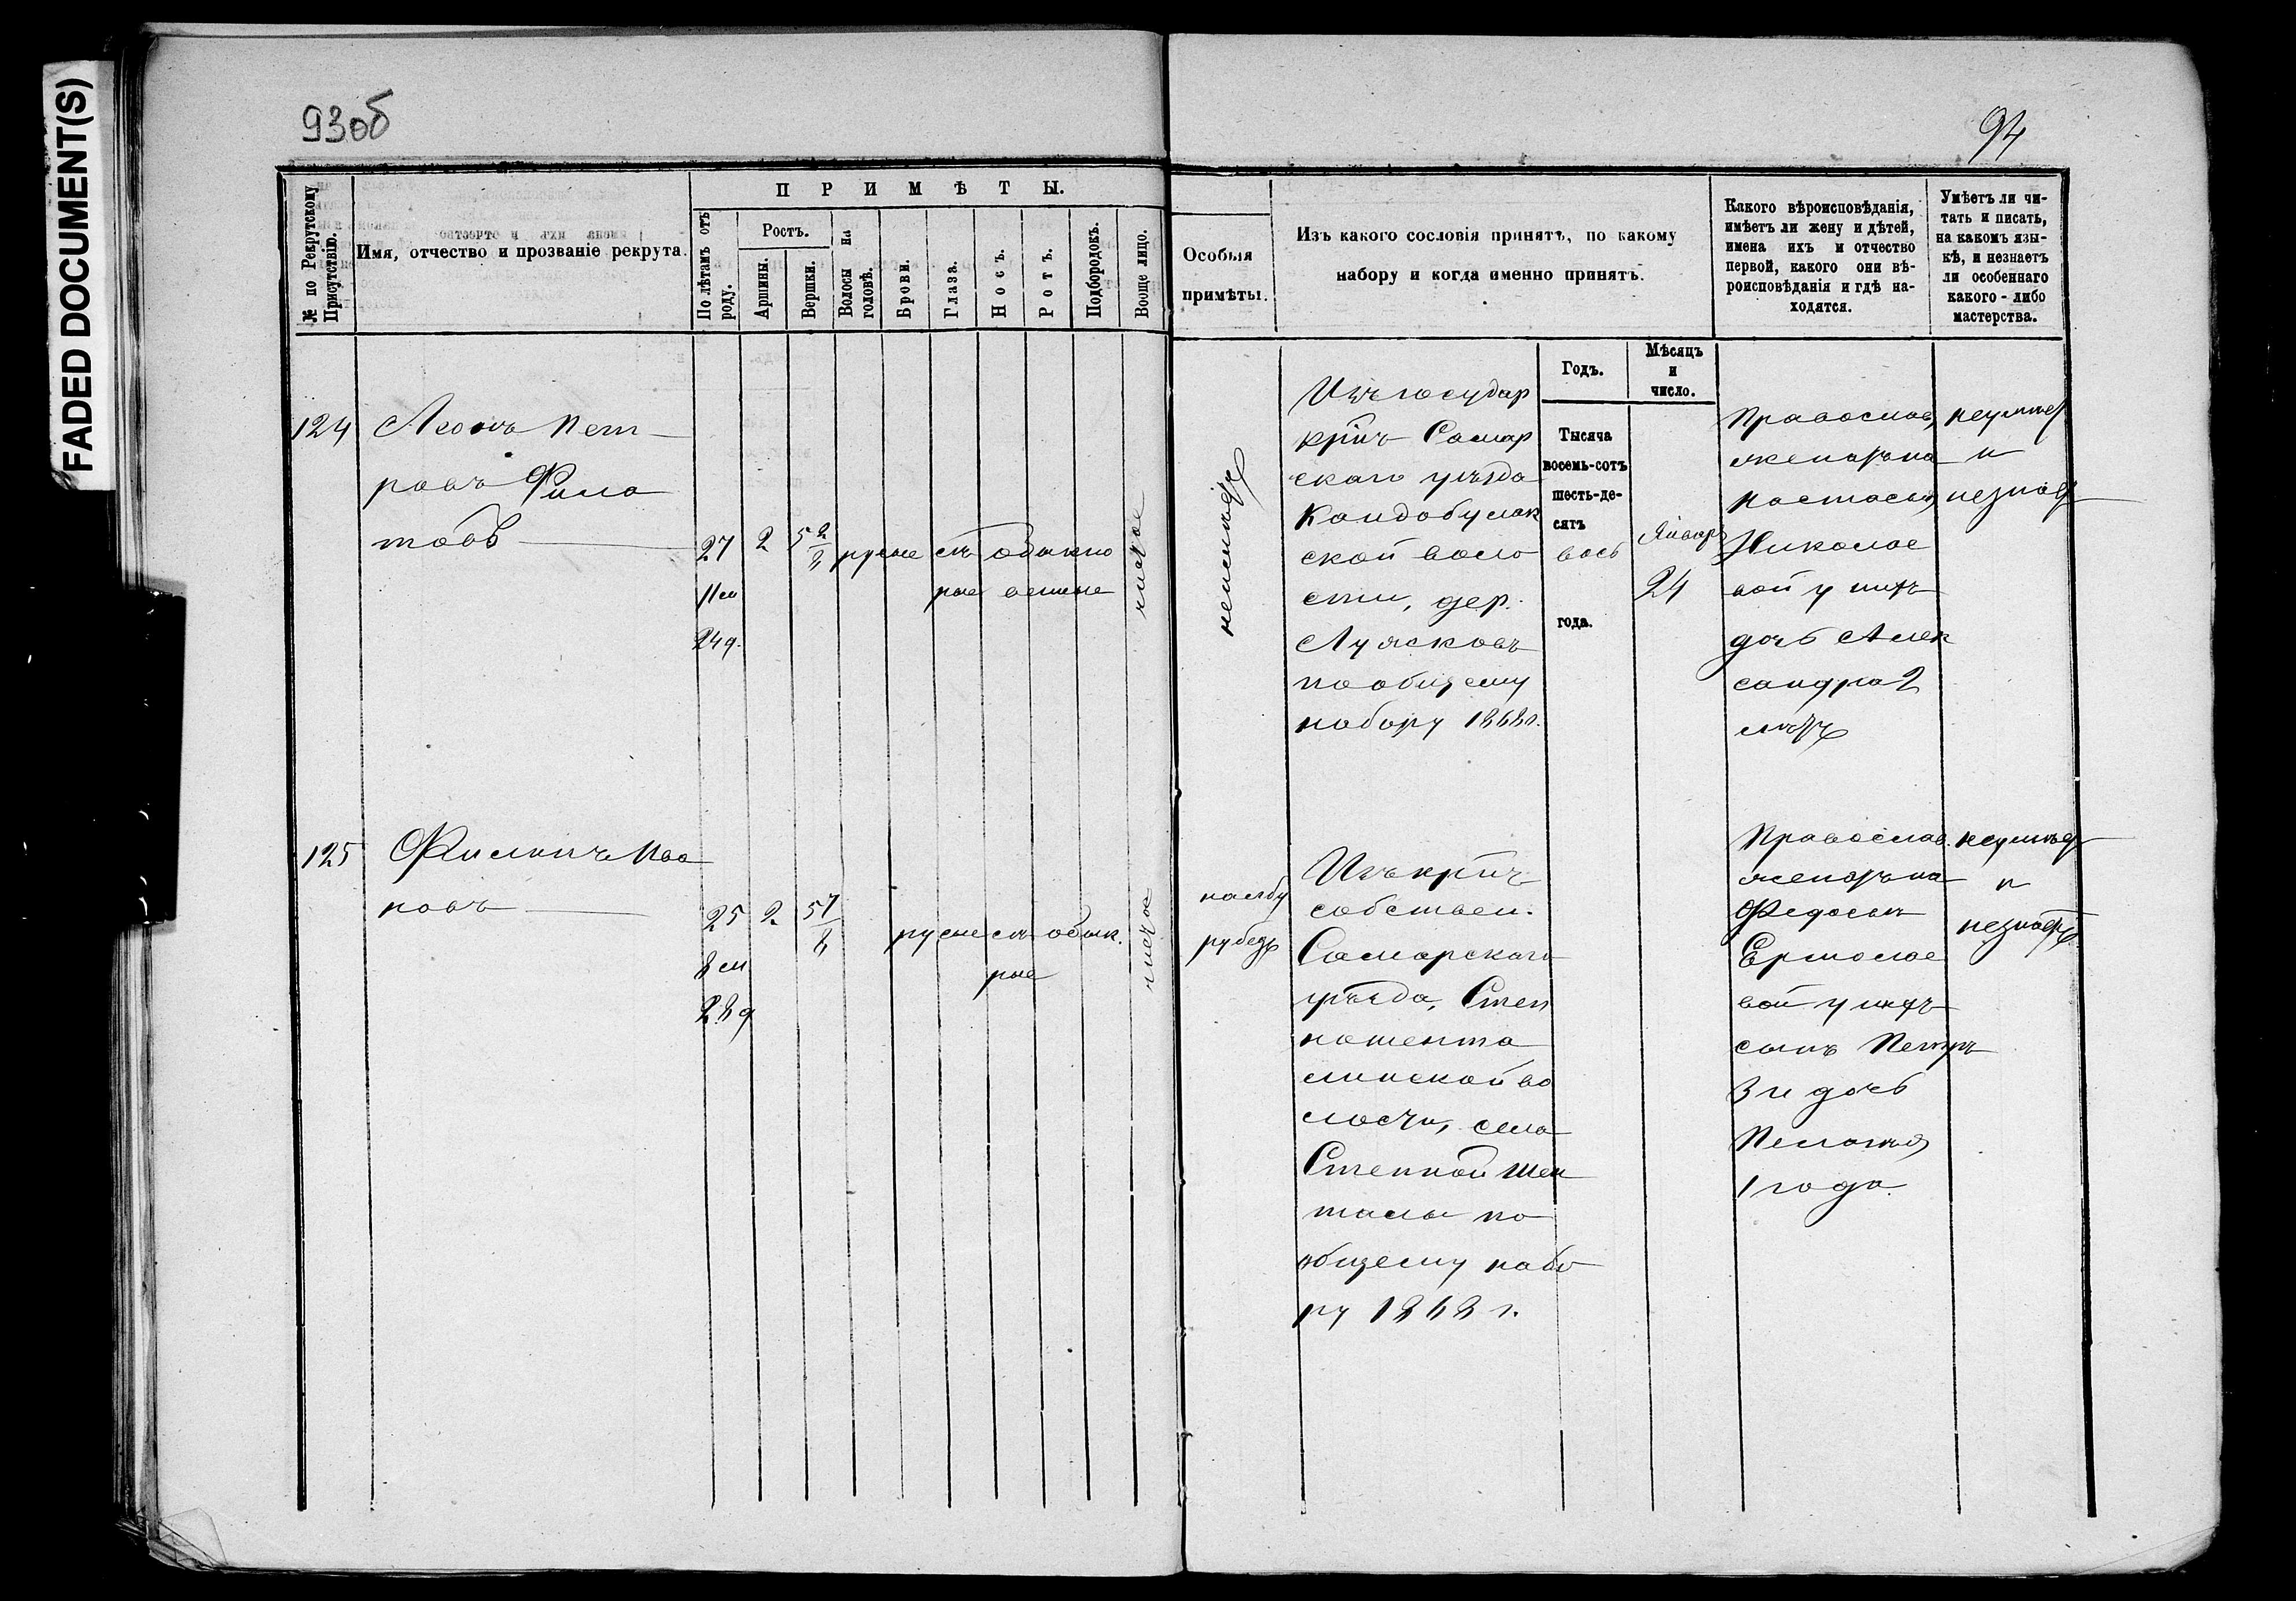 FADED DOCUMENT(S)
93об
94
№ по Рекрутскому Присутствію.
Имя, отчество и прозваніе рекрута.
ПРИМѢТЫ.
По лѣтамъ отъ роду.
Ростъ.
Аршины.
Вершки.
Волосы на головѣ.
Брови.
Глаза.
Носъ.
Ротъ.
Подбородокъ.
Вооще лицо.
Особыя
примѣты.
Изъ какого сословія принятъ, по какому
набору и когда именно принятъ.
Какого вѣроисповѣданія,
имѣетъ ли жену и дѣтей,
имена ихъ и отчество
первой, какого они вѣ-
роисповѣданія и гдѣ на-
ходятся.
Умѣетъ ли чи-
тать и писать,
на какомъ язы-
кѣ, и незнаетъ
ли особеннаго
какого-либо
мастерства.
Годъ.
Мѣсяцъ
и
число.
124
Пет
ровъ Фила
товъ
27
11 м
24 д.
2
5 2/8
русые
сѣ
рые
обыкно
венные
чистое
неимѣетъ
Изъ государ
крѣнъ Самар
скаго уѣзда
Кандобулак
ской воло
сти, дер.
Лужковъ
по общему
набору 1868 г.
Тысяча
восемь-сотъ
шесть-де-
сятъ
вось
года.
Январь
24
Православ,
женатъ на
Настасьѣ
Николае
вой у нихъ
дочь Алек
сандра 2
лѣтъ
неумѣет
и
незнает
125
Филипъ Ива
новъ
25
8 м
28 д
2
5 7/8
русые
сѣ
рые
обык.
чистое
на лбу
рубецъ
Изъ крѣнъ
собствен.
Самарскаго
уѣзда, Степ
ношента
линской во
лости, села
Степной Шен
талы по
общему набо
ру 1868 г.
Православ.
женатъ на
Федосьѣ
Ермолае
вой у нихъ
сынъ Петръ
3 и дочь
Пелагия
1 года.
неумѣет
и
незнаетъ